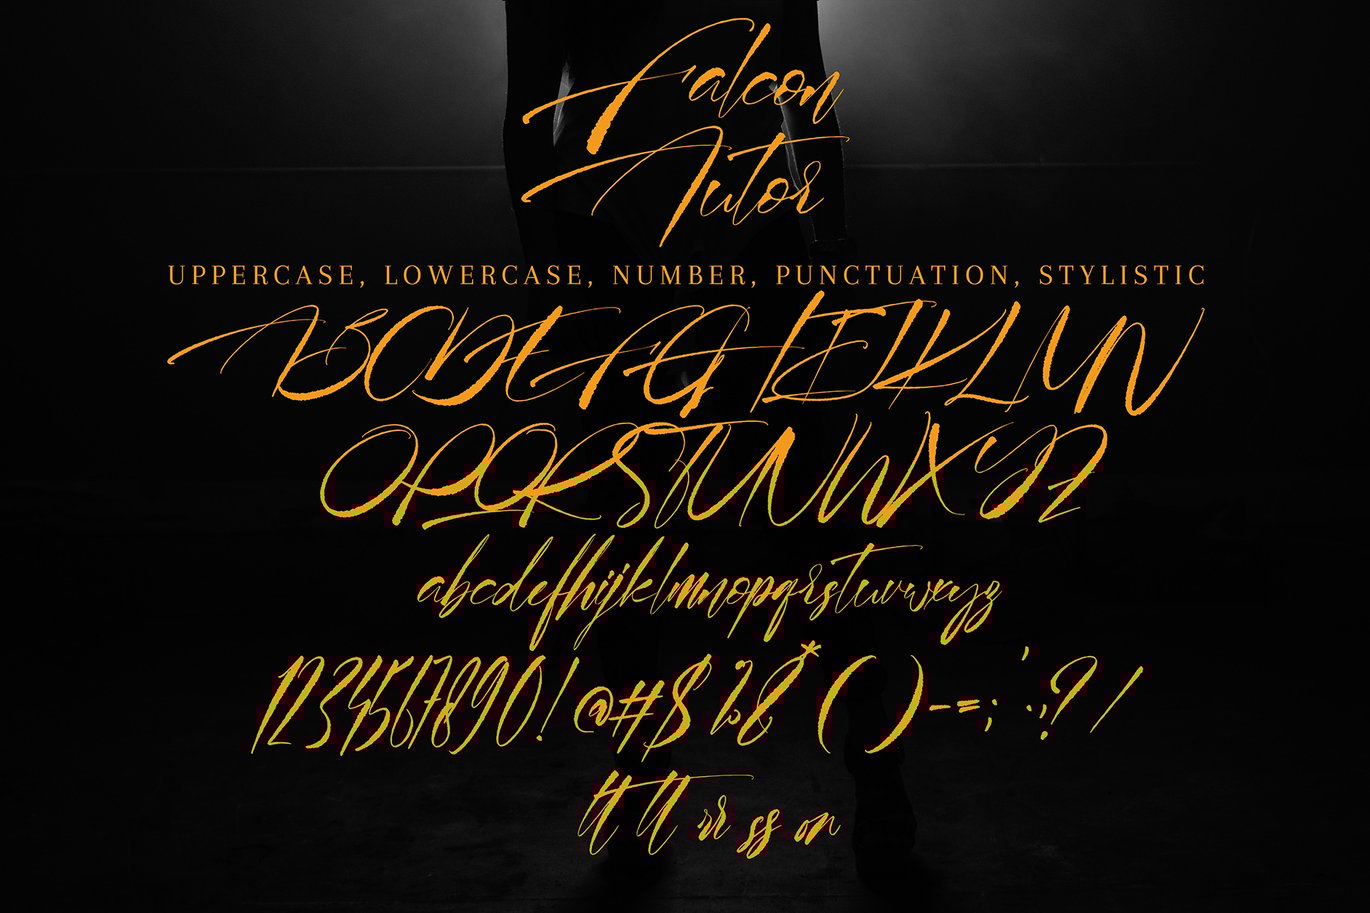 Falcon
Autor
UPPERCASE, LOWERCASE, NUMBER, PUNCTUATION, STYLISTIC
ABCDEFGHIJKLMN
OPQRSTUVWXYZ
abcdefhijklmnopqrstuvwxyz
1234567890!@#$%&*()-=;'.,:?/
tt tt rr ss on